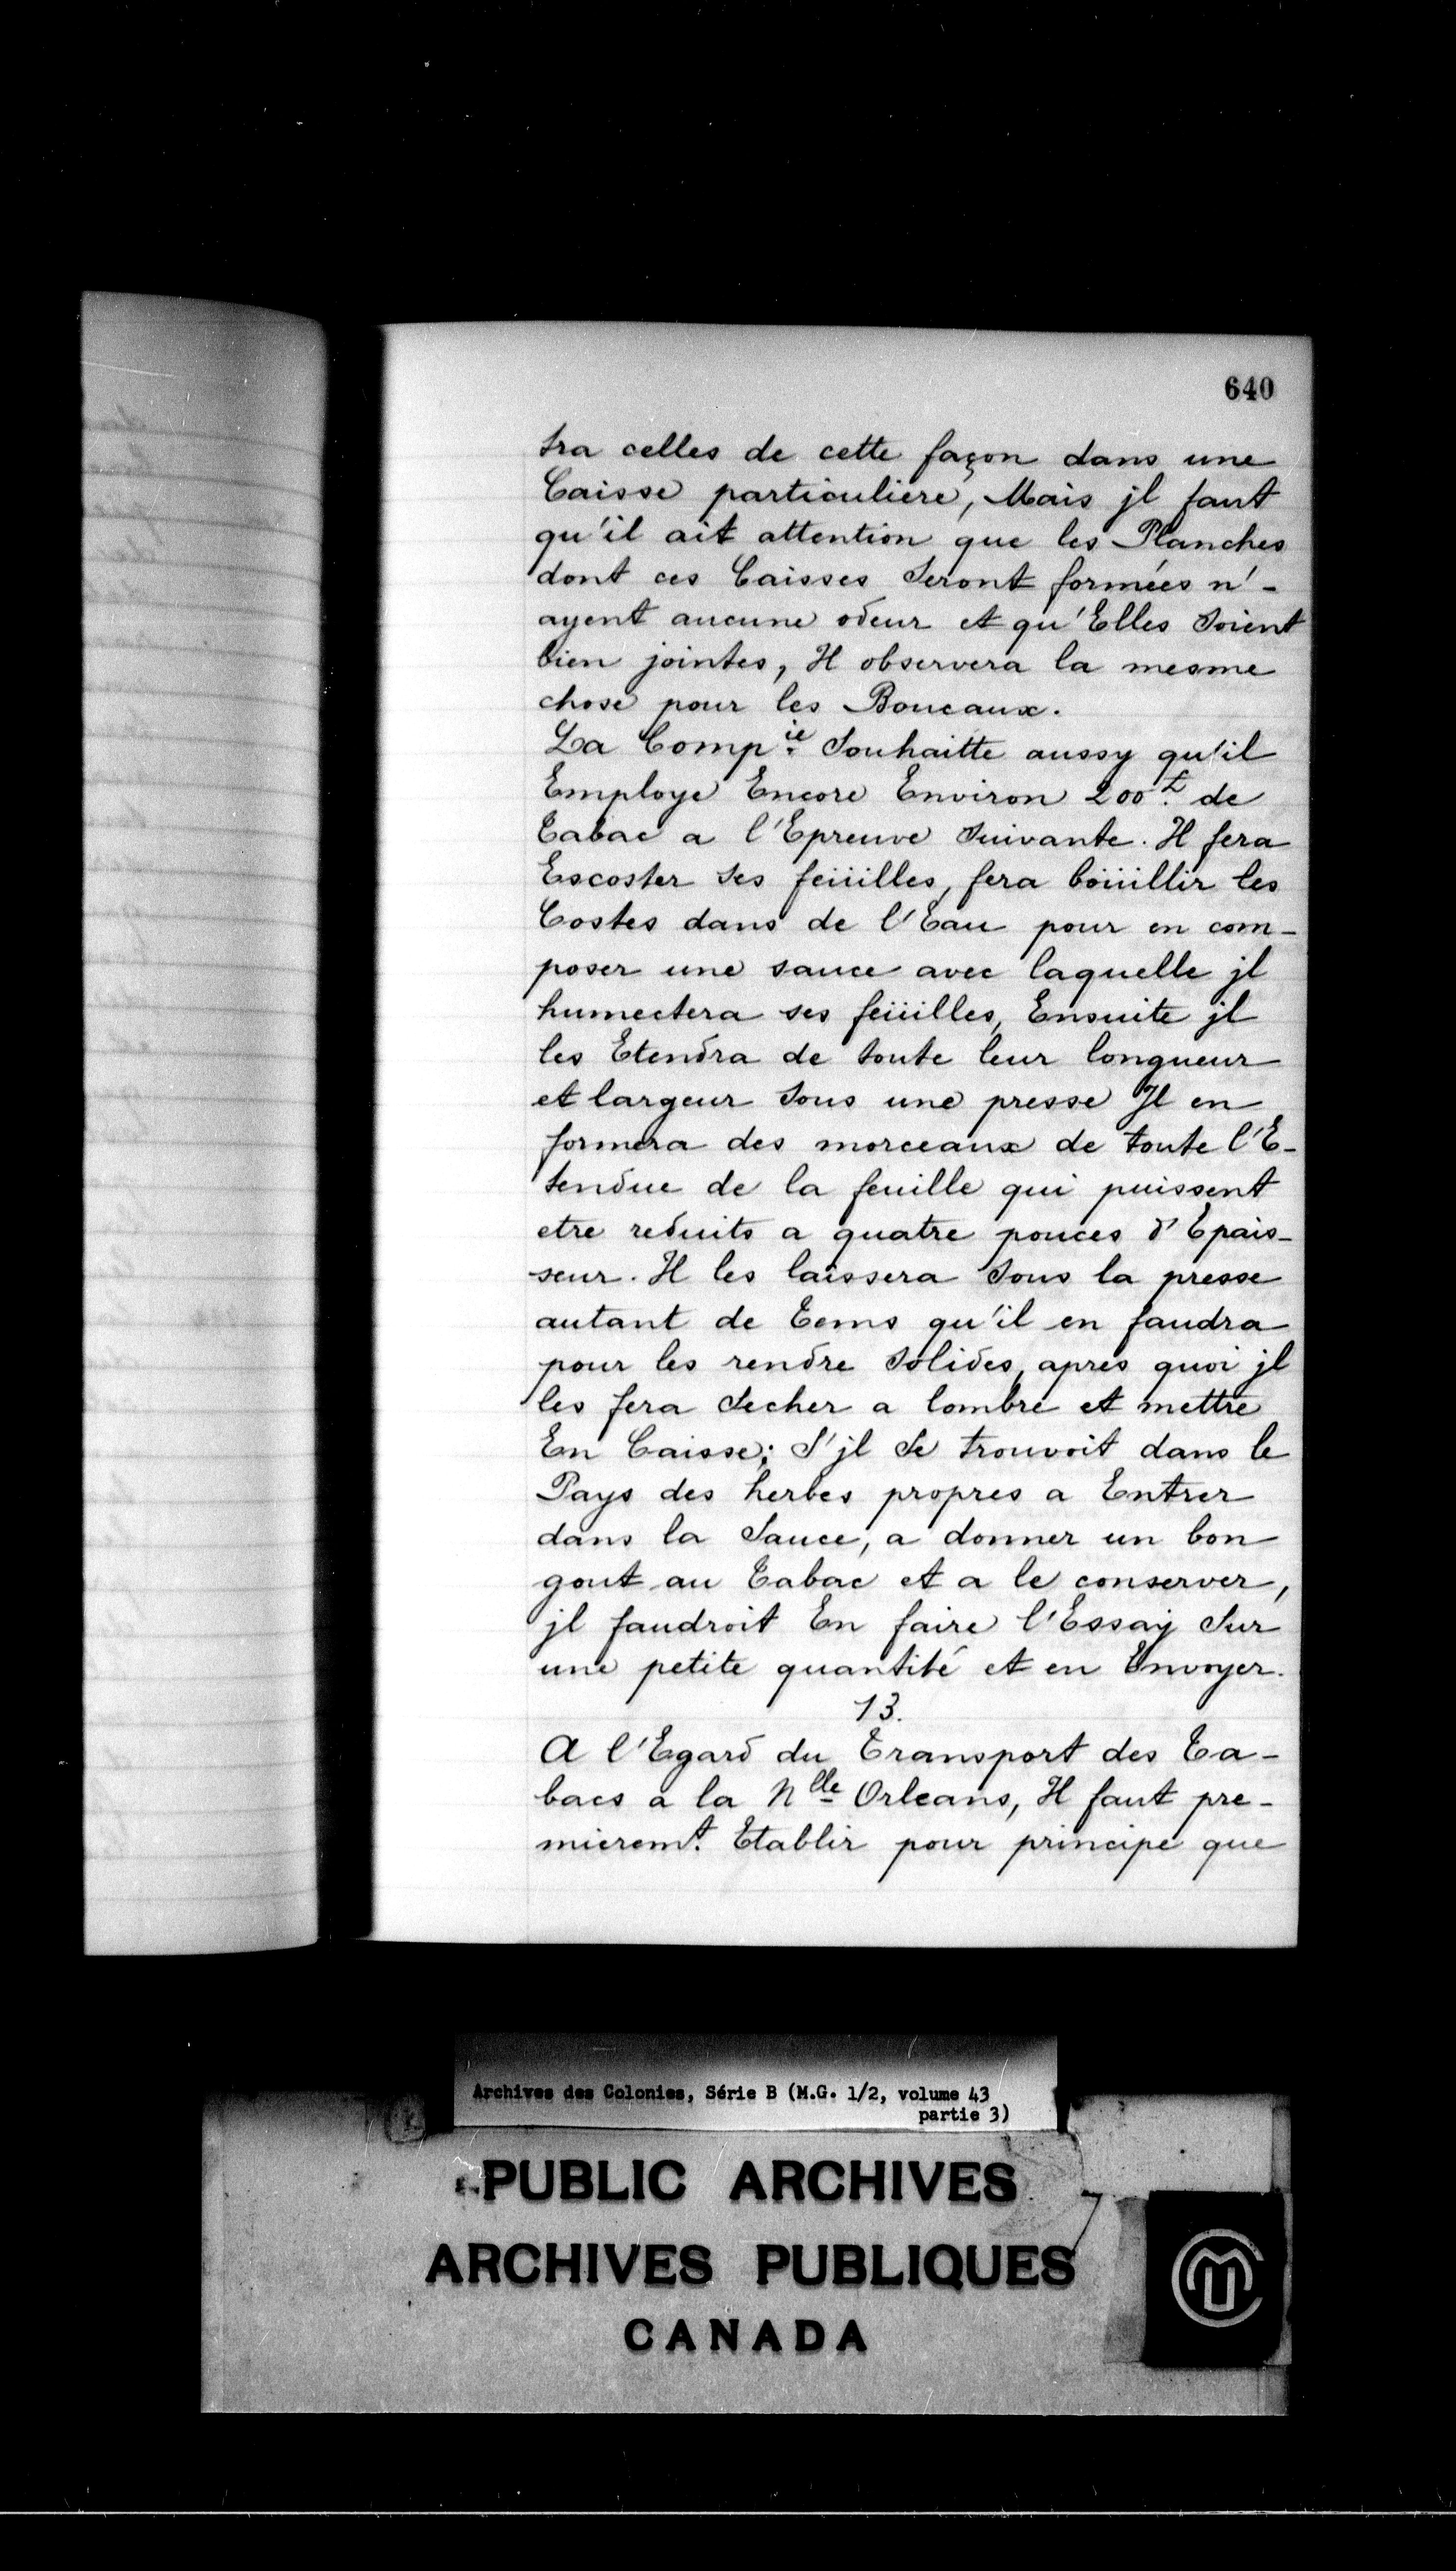 640
tra celles de cette façon dans une
Caisse particuliere, Mais jl faut
qu'il ait attention que les Planches
dont ces Caisses Seront formées n'-
ayent aucune odeur et qu'Elles Soient
bien jointes, Il observera la mesme
chose pour les Boucaux.
La Comp.ie Souhaitte aussy qu'il
Employe Encore Environ 200.£ de
Tabac a l'Epreuve Suivante. Il fera
Escoster ses feüilles, fera boüillir les
Costes dans de l'Eau pour en com-
poser une sauce avec laquelle jl
humectera ses feüilles, Ensuite jl
les Etendra de toute leur longueur
et largeur Sous une presse Jl en
formera des morceaux de toute l'E-
tendue de la feuille qui puissent
etre reduits a quatre pouces d'Epais-
seur. Il les laissera Sous la presse
autant de Tems qu'il en faudra
pour les rendre Solides, apres quoi jl
les fera Secher a lombre et mettre
En Caisse; S'jl Se trouvoit dans le
Pays des herbes propres a Entrer
dans la Sauce, a donner un bon
gout au Tabac et a le conserver,
jl faudroit En faire l'Essay Sur
une petite quantité et en Envoyer.
13.
A l'Egard du Transport des Ta-
bacs a la Nlle Orleans, Il faut pre-
mierem.t Etablir pour principe que
Archives des Colonies, Série B (M.G. 1/2, volume 43
partie 3)
PUBLIC ARCHIVES
ARCHIVES PUBLIQUES
CANADA